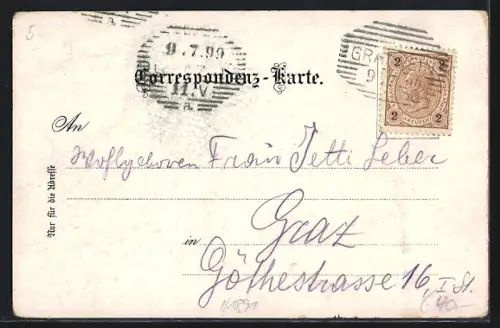 5
9.7.99
11.V
a.
a.
GRA
9
2 2
2 2
Correspondenz-Karte.
An
Wohlgeboren Frau Jetti Leber
Nur für die Adresse
in Graz
Göthestrasse 16, I. St.